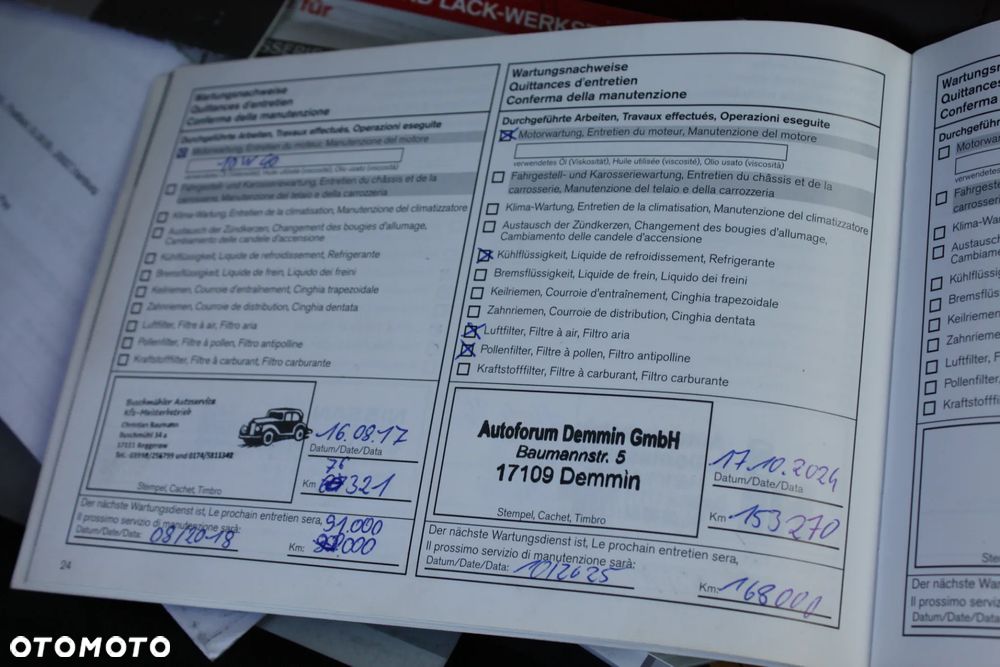 für
LACK-WERKST
Wartungsnachweise
Quittances d'entretien
Conferma della manutenzione
Durchgeführte Arbeiten, Travaux effectués, Operazioni eseguite
Motorwartung, Entretien du moteur, Manutenzione del motore
10W40
verwendetes Öl (Viskosität), Huile utilisée (viscosité), Olio usato (viscosità)
Fahrgestell- und Karosseriewartung, Entretien du châssis et de la
carrosserie, Manutenzione del telaio e della carrozzeria
Klima-Wartung, Entretien de la climatisation, Manutenzione del climatizzatore
Austausch der Zündkerzen, Changement des bougies d'allumage,
Cambiamento delle candele d'accensione
Kühlflüssigkeit, Liquide de refroidissement, Refrigerante
Bremsflüssigkeit, Liquide de frein, Liquido dei freini
Keilriemen, Courroie d'entraînement, Cinghia trapezoidale
Zahnriemen, Courroie de distribution, Cinghia dentata
Luftfilter, Filtre à air, Filtro aria
Pollenfilter, Filtre à pollen, Filtro antipolline
Kraftstofffilter, Filtre à carburant, Filtro carburante
Buschmühler Autoservice
Kfz-Meisterbetrieb
Christian Baumann
Buschmühl 34 a
17111 Beggerow
Tel.: 03998/256799 und 0174/5811348
Stempel, Cachet, Timbro
16.08.17
Datum/Date/Data
76
Km 321
Der nächste Wartungsdienst ist, Le prochain entretien sera,
Il prossimo servizio di manutenzione sarà:
Datum/Date/Data: 08/2018
91.000
Km: 000
24
Wartungsnachweise
Quittances d'entretien
Conferma della manutenzione
Durchgeführte Arbeiten, Travaux effectués, Operazioni eseguite
Motorwartung, Entretien du moteur, Manutenzione del motore
verwendetes Öl (Viskosität), Huile utilisée (viscosité), Olio usato (viscosità)
Fahrgestell- und Karosseriewartung, Entretien du châssis et de la
carrosserie, Manutenzione del telaio e della carrozzeria
Klima-Wartung, Entretien de la climatisation, Manutenzione del climatizzatore
Austausch der Zündkerzen, Changement des bougies d'allumage,
Cambiamento delle candele d'accensione
Kühlflüssigkeit, Liquide de refroidissement, Refrigerante
Bremsflüssigkeit, Liquide de frein, Liquido dei freini
Keilriemen, Courroie d'entraînement, Cinghia trapezoidale
Zahnriemen, Courroie de distribution, Cinghia dentata
Luftfilter, Filtre à air, Filtro aria
Pollenfilter, Filtre à pollen, Filtro antipolline
Kraftstofffilter, Filtre à carburant, Filtro carburante
Autoforum Demmin GmbH
Baumannstr. 5
17109 Demmin
Stempel, Cachet, Timbro
17.10.2024
Datum/Date/Data
Km 153270
Der nächste Wartungsdienst ist, Le prochain entretien sera,
Il prossimo servizio di manutenzione sarà:
Datum/Date/Data: 10/2025
Km: 168000
Wartungsn
Quittances
Conferma
Durchgeführ
Motorwar
verwendetes
Fahrgeste
carrosseri
Klima-Wa
Austausch
Cambiame
Kühlflüssi
Bremsflüs
Keilriemen
Zahnrieme
Luftfilter, F
Pollenfilter
Kraftstofffi
Ste
Der nächste Wa
Il prossimo servizio
Datum/Date/Data:
OTOMOTO